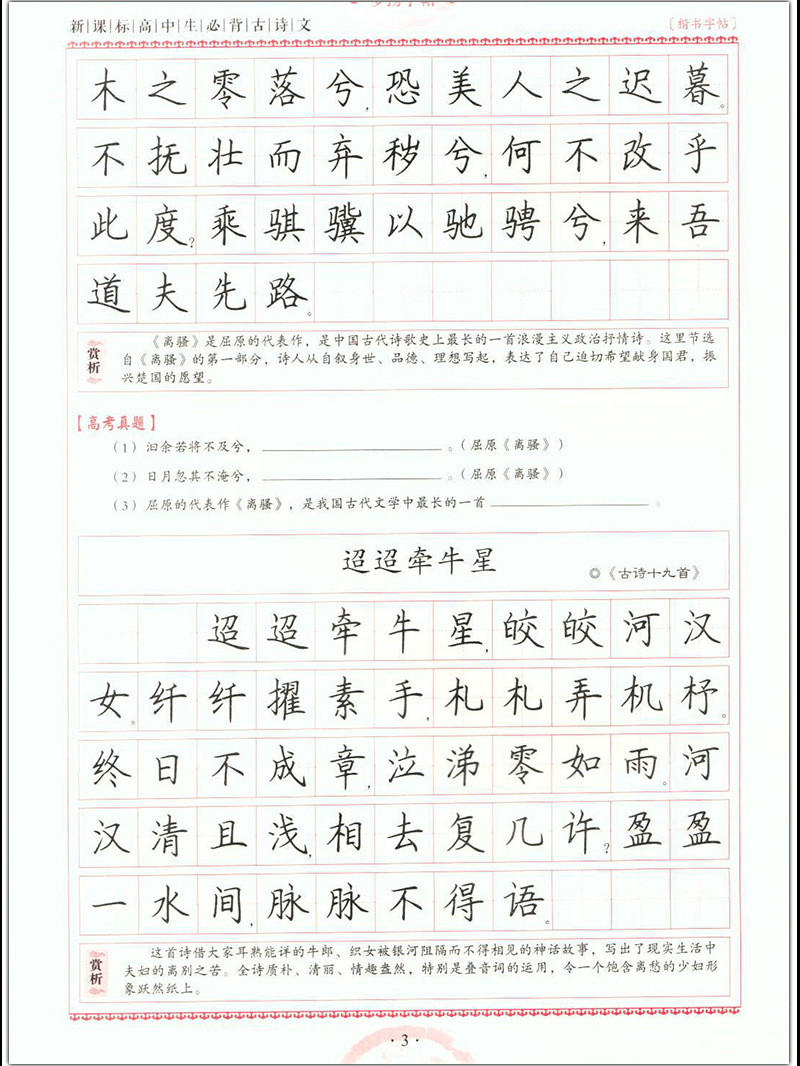 新|课|标|高|中|生|必|背|古|诗|文
[楷书字帖]
木之零落兮，恐美人之迟暮。
不抚壮而弃秽兮，何不改乎
此度？乘骐骥以驰骋兮，来吾
道夫先路。
赏析
《离骚》是屈原的代表作，是中国古代诗歌史上最长的一首浪漫主义政治抒情诗。这里节选
自《离骚》的第一部分，诗人从自叙身世、品德、理想写起，表达了自己迫切希望献身国君，振
兴楚国的愿望。
【高考真题】
（1）汩余若将不及兮，________________。（屈原《离骚》）
（2）日月忽其不淹兮，________________。（屈原《离骚》）
（3）屈原的代表作《离骚》，是我国古代文学中最长的一首________________。
迢迢牵牛星
◎《古诗十九首》
迢迢牵牛星，皎皎河汉
女。纤纤擢素手，札札弄机杼。
终日不成章，泣涕零如雨。河
汉清且浅，相去复几许？盈盈
一水间，脉脉不得语。
赏析
这首诗借大家耳熟能详的牛郎、织女被银河阻隔而不得相见的神话故事，写出了现实生活中
夫妇的离别之苦。全诗质朴、清丽、情趣盎然，特别是叠音词的运用，令一个饱含离愁的少妇形
象跃然纸上。
·3·